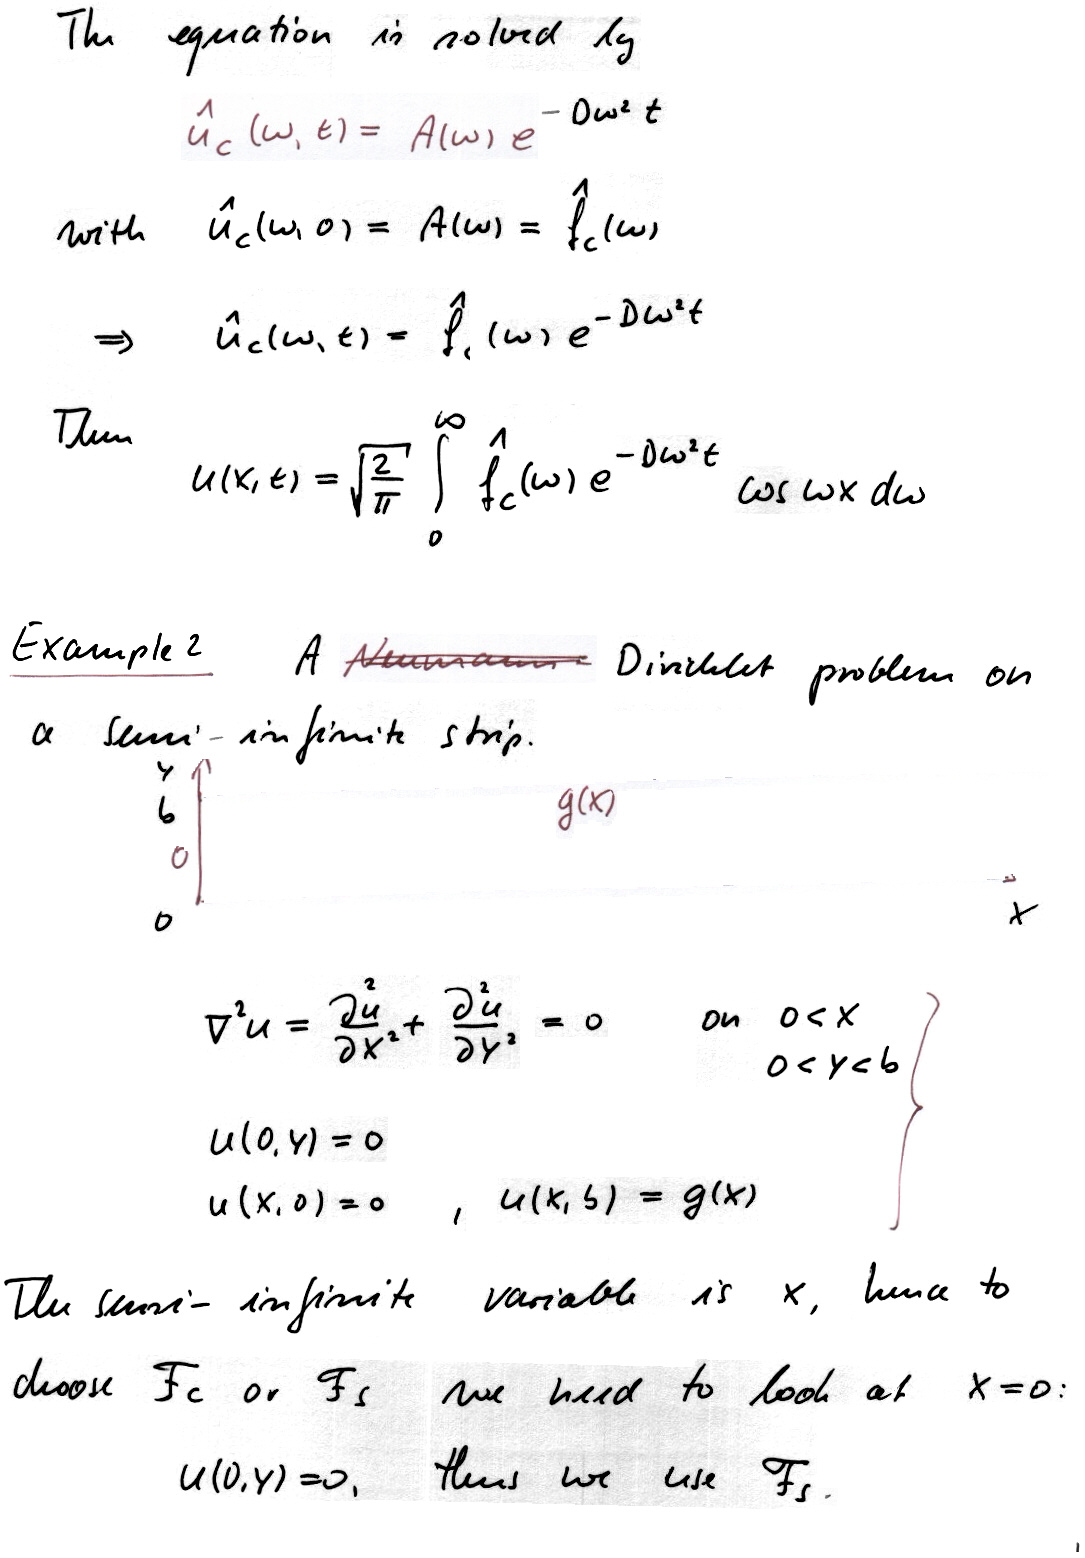 The equation is solved by
û_c(ω, t) = A(ω) e^{-Dω² t}
with û_c(ω, 0) = A(ω) = f̂_c(ω)
⇒ û_c(ω, t) = f̂_c(ω) e^{-Dω²t}
Then
u(x, t) = √(2/π) ∫_0^∞ f̂_c(ω) e^{-Dω²t} cos ωx dω
Example 2 A Neumann Dirichlet problem on
a semi-infinite strip.
y
b g(x)
0
0 x
∇²u = ∂²u/∂x² + ∂²u/∂y² = 0 on 0<x
0<y<b
u(0,y) = 0
u(x,0) = 0 , u(x,b) = g(x)
The semi-infinite variable is x, hence to
choose F_c or F_s we need to look at x=0:
u(0,y)=0, thus we use F_s.